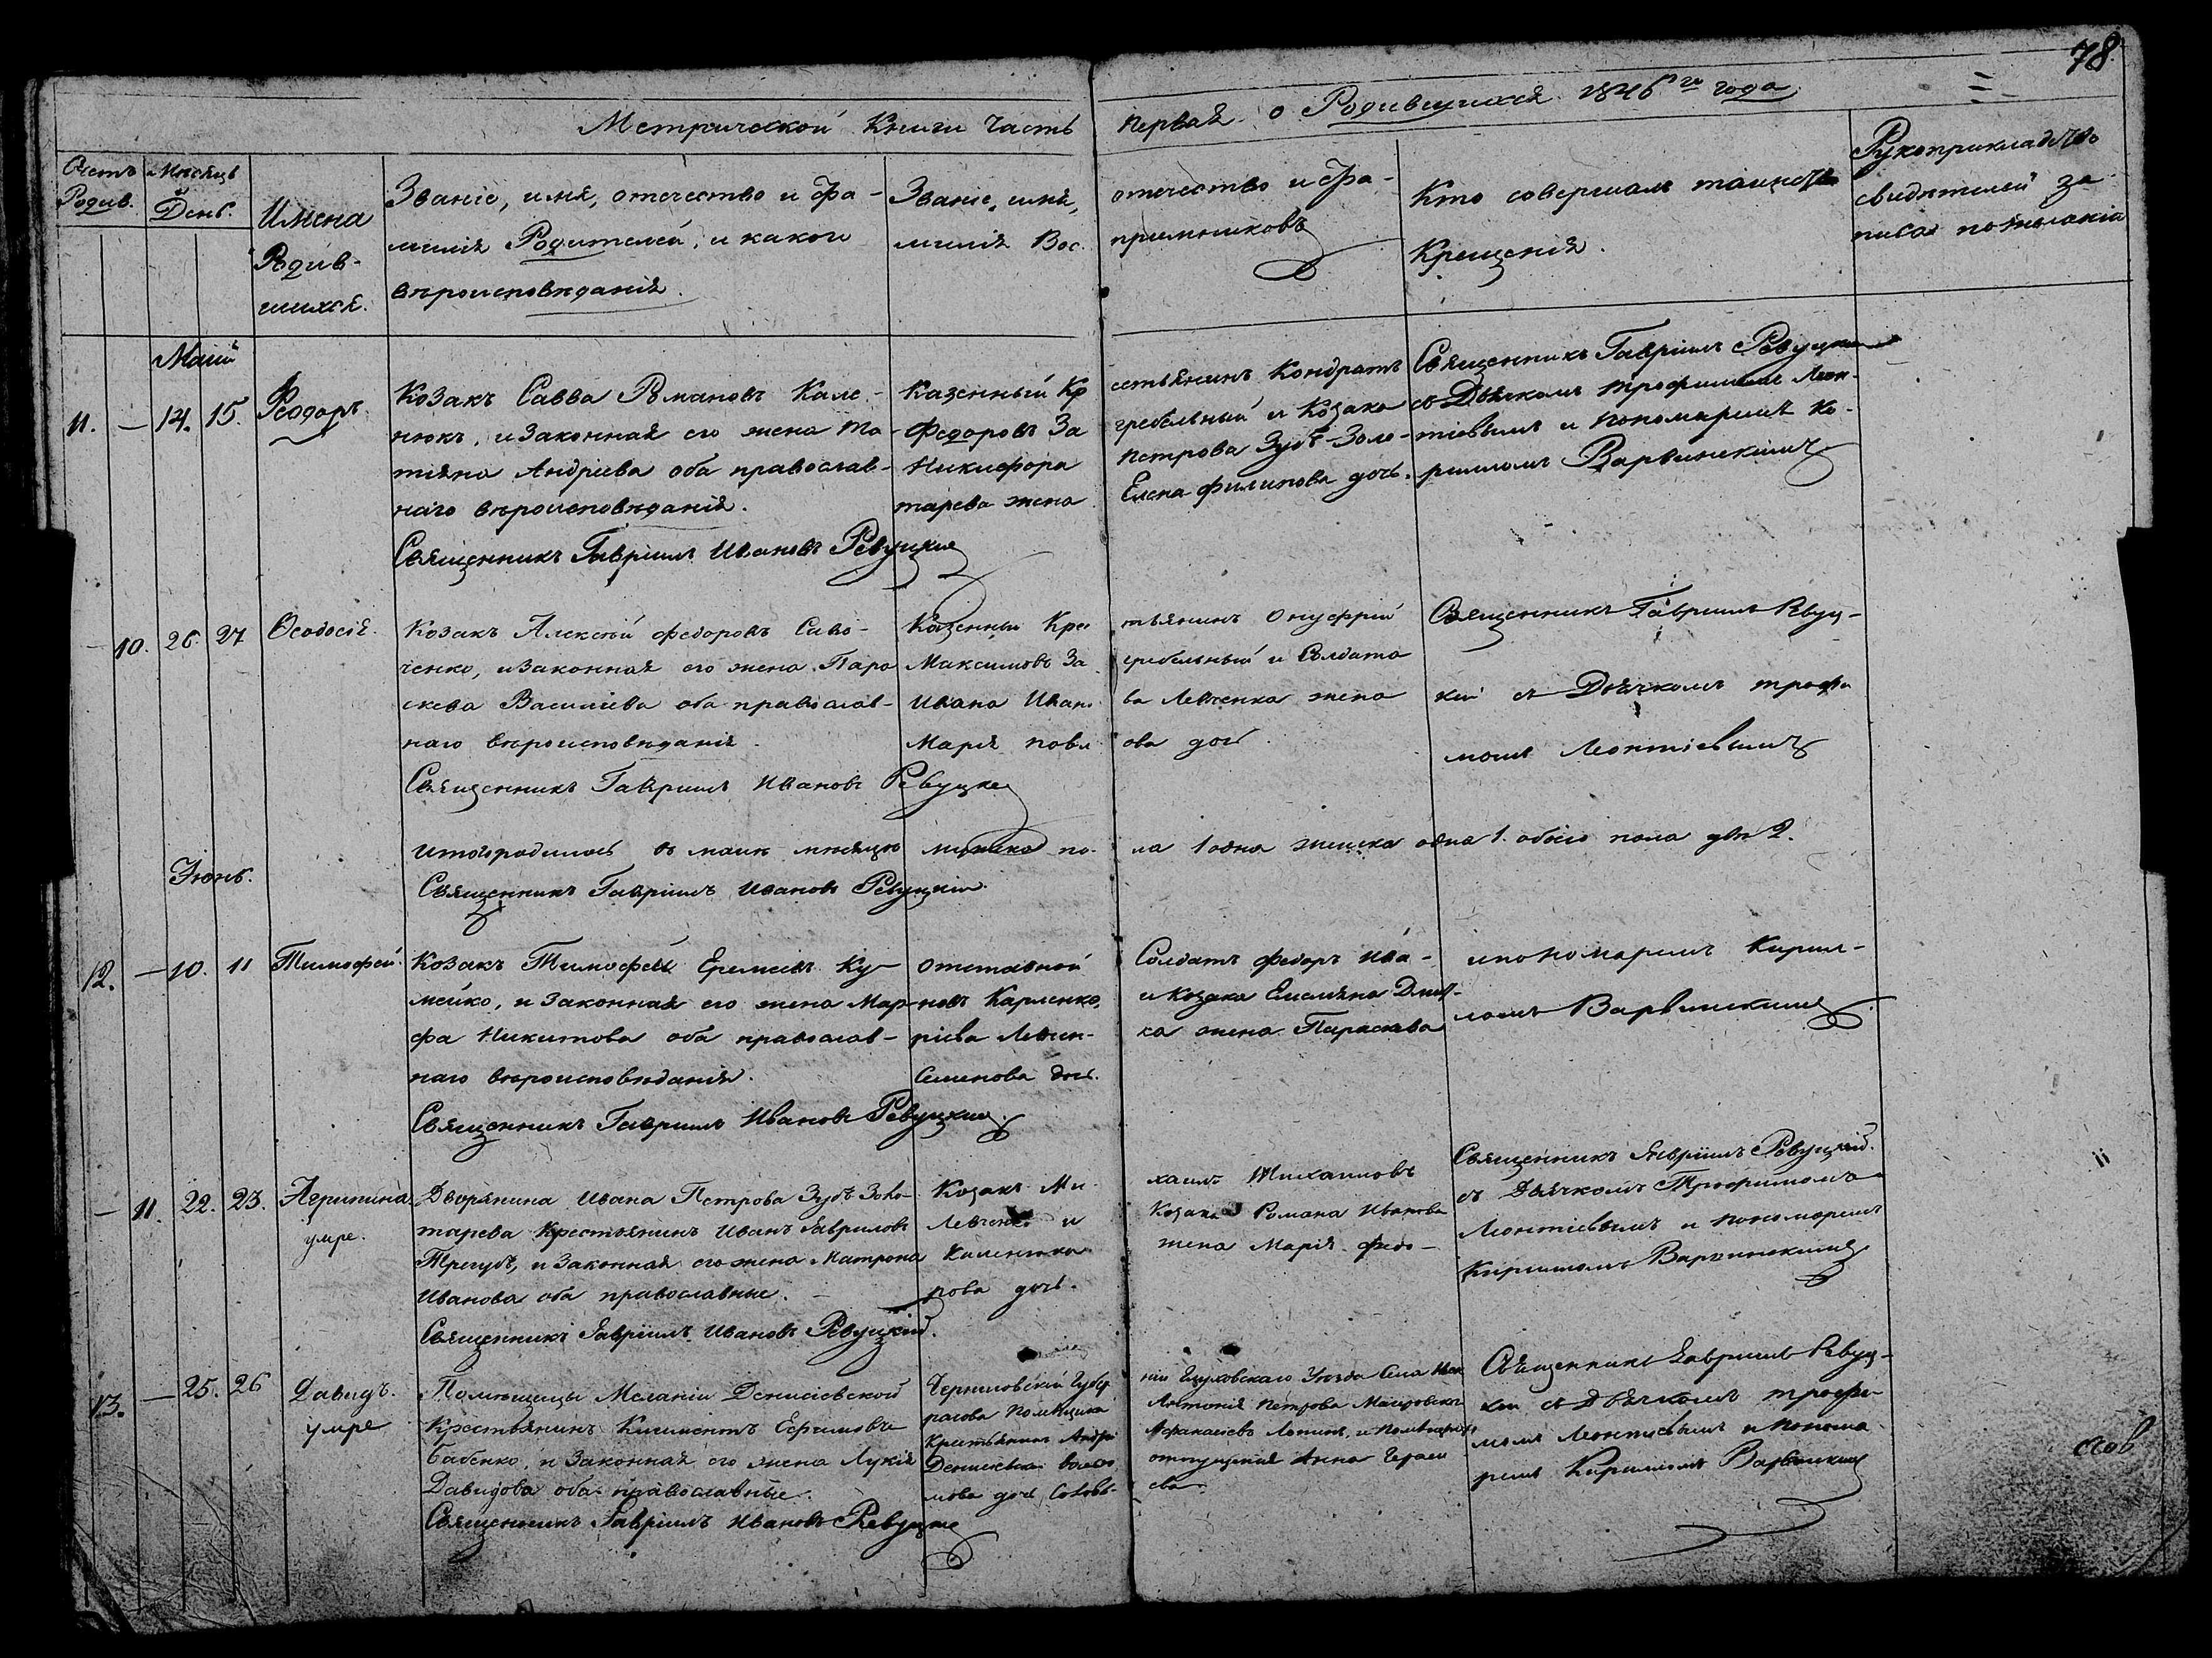 78.
Метрической Книги Часть первая о Родившихся 1846го года
Счетъ Родив.
Мѣсяцъ и День.
Имена Родив-
шихся.
Званіе, имя, отечество и Фа-
милія Родителей, и какои
вѣроисповѣданія.
Званіе, имя, отечество и Фа-
милія Вос. приемниковъ
Кто совершалъ таинство
Крещенія.
Рукоприкладство
свидѣтелей за
писи по желанію
Маій
11. — 14. 15. Ѳеодоръ.
Козакъ Савва Романовъ Кале-
нюкъ, и Законная его жена Та-
тіяна Андріева оба православ-
наго вѣроисповѣданія.
Священникъ Гавріилъ Ивановъ Ревуцкій
Казенный Кре стьянинъ Кондратъ
Федоровъ За гребельный и Козака
Никифора Петрова Зубъ-Золо-
тарева жена Елена Филипова дочь.
Священникъ Гавріилъ Ревуцкій
съ Дьячкомъ Трофимомъ Леон-
тіевымъ и пономаремъ Ки-
риломъ Варвинскимъ
— 10. 26. 27 Ѳеодосія.
Козакъ Алексѣй Федоровъ Саво-
ченко, и Законная его жена Пара
скева Василіева оба православ-
наго вѣроисповѣданія.
Священникъ Гавріилъ Ивановъ Ревуцкій
Казенный Крес тьянинъ Онуфрій
Максимовъ За гребельный и Солдата
Ивана Ивано ва Левченка жена
Марія Павл ова дочь.
Священникъ Гавріилъ Ревуц-
кій съ Дьячкомъ Трофи
момъ Леонтіевымъ
Итого родилось въ маии мѣсяцѣ мужска по- ла 1 одна женска одна 1. обоего пола двѣ 2.
Священникъ Гавріилъ Ивановъ Ревуцкій.
Іюнь.
12. — 10. 11 Тимофей.
Козакъ Тимофей Еремѣевъ Ку-
мейко, и Законная его жена Мар-
фа Никитова оба православ-
наго вѣроисповѣданія.
Священникъ Гавріилъ Ивановъ Ревуцкій.
Отставной Солдатъ Федоръ Ива-
новъ Карпенко, и Козака Емеліяна Дмит-
ріева Левчен- ка жена Параскева
Семенова дочь.
и пономаремъ Кирил-
ломъ Варвинскимъ
— 11. 22. 23. Агрипина
умре.
Дворянина Ивана Петрова Зубъ Золо-
тарева Крестьянинъ Иванъ Гавриловъ
Трегубъ, и Законная его жена Матрона
Иванова оба православные. —
Священникъ Гавріилъ Ивановъ Ревуцкій.
Козакъ Ми- хаилъ Михаиловъ
Левченко и Козака Романа Иванова
Каленюка жена Марія Федо-
рова дочь.
Священникъ Гавріилъ Ревуцкій.
съ Дьячкомъ Трофимомъ
Леонтіевымъ и пономаремъ
Кириломъ Варвинскимъ
13. — 25. 26 Давидъ.
умре
Помѣщицы Меланіи Денисіевской
Крестьянинъ Климентъ Ефимовъ
Бабенко, и Законная его жена Лукія
Давидова оба православные.
Священникъ Гавріилъ Ивановъ Ревуцкій
Черниговской Губер ніи Глуховскаго Уезда Села
Помѣщика Антонія Петрова
Крестьянинъ Андрей Афанасіевъ
отпущенная Анна Гераси
мова дочь
Священникъ Гавріилъ Ревуц-
кій съ Дьячкомъ Трофи-
момъ Леонтіевымъ и понома
ремъ Кириломъ Варвинскимъ